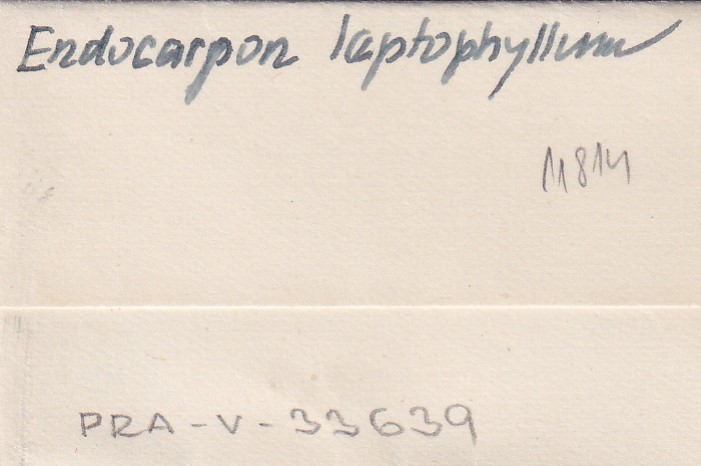 Endocarpon leptophyllum
11814
PRA-V-33639